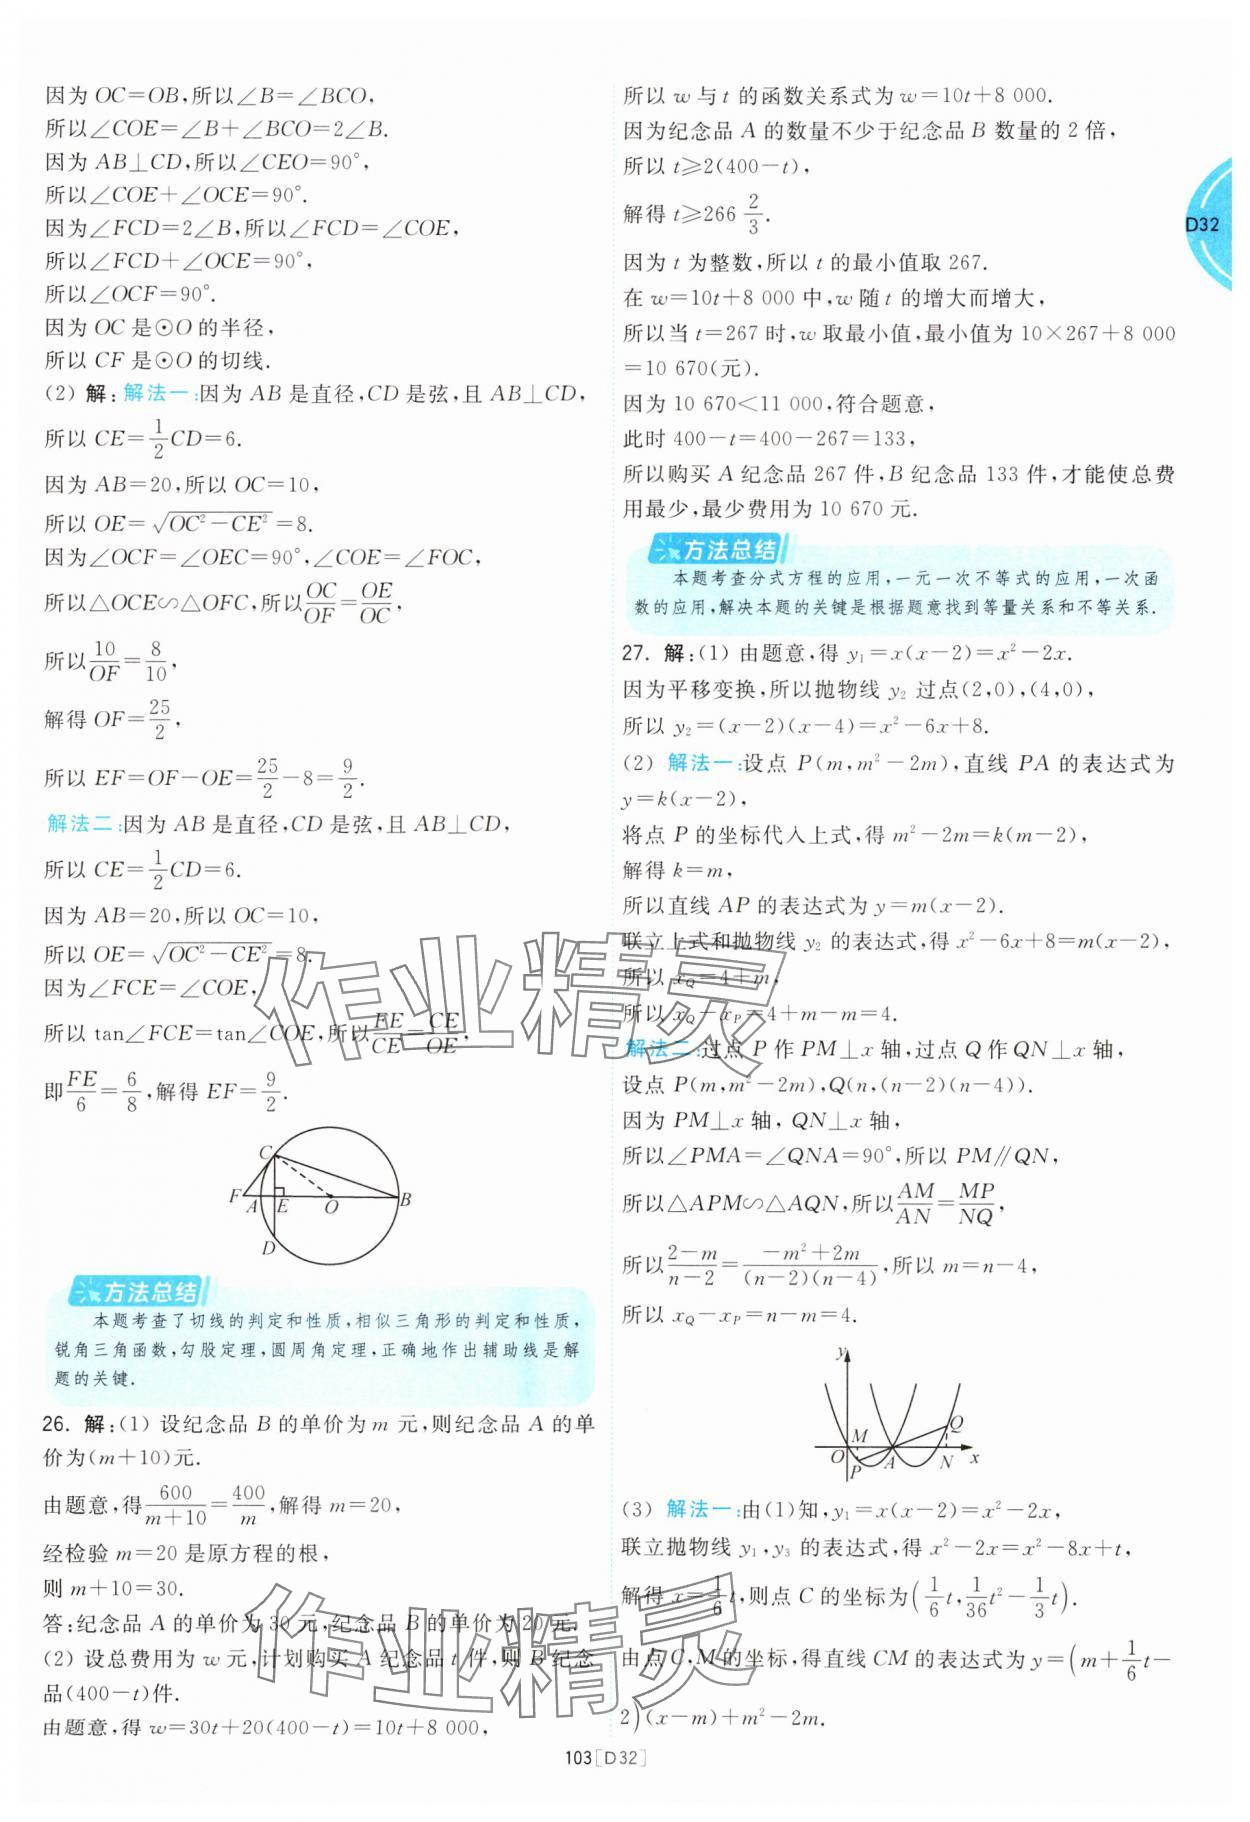 因为 OC=OB,所以∠B=∠BCO,
所以∠COE=∠B+∠BCO=2∠B.
因为 AB⊥CD,所以∠CEO=90°,
所以∠COE+∠OCE=90°.
因为∠FCD=2∠B,所以∠FCD=∠COE,
所以∠FCD+∠OCE=90°,
所以∠OCF=90°.
因为 OC 是⊙O 的半径,
所以 CF 是⊙O 的切线.
(2) 解:解法一:因为 AB 是直径,CD 是弦,且 AB⊥CD,
所以 CE=1/2CD=6.
因为 AB=20,所以 OC=10,
所以 OE=√(OC²-CE²)=8.
因为∠OCF=∠OEC=90°,∠COE=∠FOC,
所以△OCE∽△OFC,所以OC/OF=OE/OC,
所以10/OF=8/10,
解得 OF=25/2,
所以 EF=OF-OE=25/2-8=9/2.
解法二:因为 AB 是直径,CD 是弦,且 AB⊥CD,
所以 CE=1/2CD=6.
因为 AB=20,所以 OC=10,
所以 OE=√(OC²-CE²)=8.
因为∠FCE=∠COE,
所以 tan∠FCE=tan∠COE,所以FE/CE=CE/OE,
即FE/6=6/8,解得 EF=9/2.
C
F A E O B
D
方法总结
本题考查了切线的判定和性质,相似三角形的判定和性质,
锐角三角函数,勾股定理,圆周角定理,正确地作出辅助线是解
题的关键.
26. 解:(1) 设纪念品 B 的单价为 m 元,则纪念品 A 的单
价为(m+10)元.
由题意,得600/(m+10)=400/m,解得 m=20,
经检验 m=20 是原方程的根,
则 m+10=30.
答:纪念品 A 的单价为 30 元,纪念品 B 的单价为 20 元.
(2) 设总费用为 w 元,计划购买 A 纪念品 t 件,则 B 纪念
品(400-t)件.
由题意,得 w=30t+20(400-t)=10t+8 000,
所以 w 与 t 的函数关系式为 w=10t+8 000.
因为纪念品 A 的数量不少于纪念品 B 数量的 2 倍,
所以 t≥2(400-t),
解得 t≥266 2/3.
因为 t 为整数,所以 t 的最小值取 267.
在 w=10t+8 000 中,w 随 t 的增大而增大,
所以当 t=267 时,w 取最小值,最小值为 10×267+8 000
=10 670(元).
因为 10 670<11 000,符合题意,
此时 400-t=400-267=133,
所以购买 A 纪念品 267 件,B 纪念品 133 件,才能使总费
用最少,最少费用为 10 670 元.
方法总结
本题考查分式方程的应用,一元一次不等式的应用,一次函
数的应用,解决本题的关键是根据题意找到等量关系和不等关系.
27. 解:(1) 由题意,得 y₁=x(x-2)=x²-2x.
因为平移变换,所以抛物线 y₂ 过点(2,0),(4,0),
所以 y₂=(x-2)(x-4)=x²-6x+8.
(2) 解法一:设点 P(m,m²-2m),直线 PA 的表达式为
y=k(x-2),
将点 P 的坐标代入上式,得 m²-2m=k(m-2),
解得 k=m,
所以直线 AP 的表达式为 y=m(x-2).
联立上式和抛物线 y₂ 的表达式,得 x²-6x+8=m(x-2),
所以 x_Q=4+m,
所以 x_Q-x_P=4+m-m=4.
解法二:过点 P 作 PM⊥x 轴,过点 Q 作 QN⊥x 轴,
设点 P(m,m²-2m),Q(n,(n-2)(n-4)).
因为 PM⊥x 轴, QN⊥x 轴,
所以∠PMA=∠QNA=90°,所以 PM∥QN,
所以△APM∽△AQN,所以AM/AN=MP/NQ,
所以(2-m)/(n-2)=(-m²+2m)/((n-2)(n-4)),所以 m=n-4,
所以 x_Q-x_P=n-m=4.
y
M Q
O P A N x
(3) 解法一:由(1)知,y₁=x(x-2)=x²-2x,
联立抛物线 y₁,y₃ 的表达式,得 x²-2x=x²-8x+t,
解得 x=1/6t,则点 C 的坐标为(1/6t,1/36t²-1/3t).
由点 C,M 的坐标,得直线 CM 的表达式为 y=(m+1/6t-
2)(x-m)+m²-2m.
D32
103[D32]
作业精灵
作业精灵